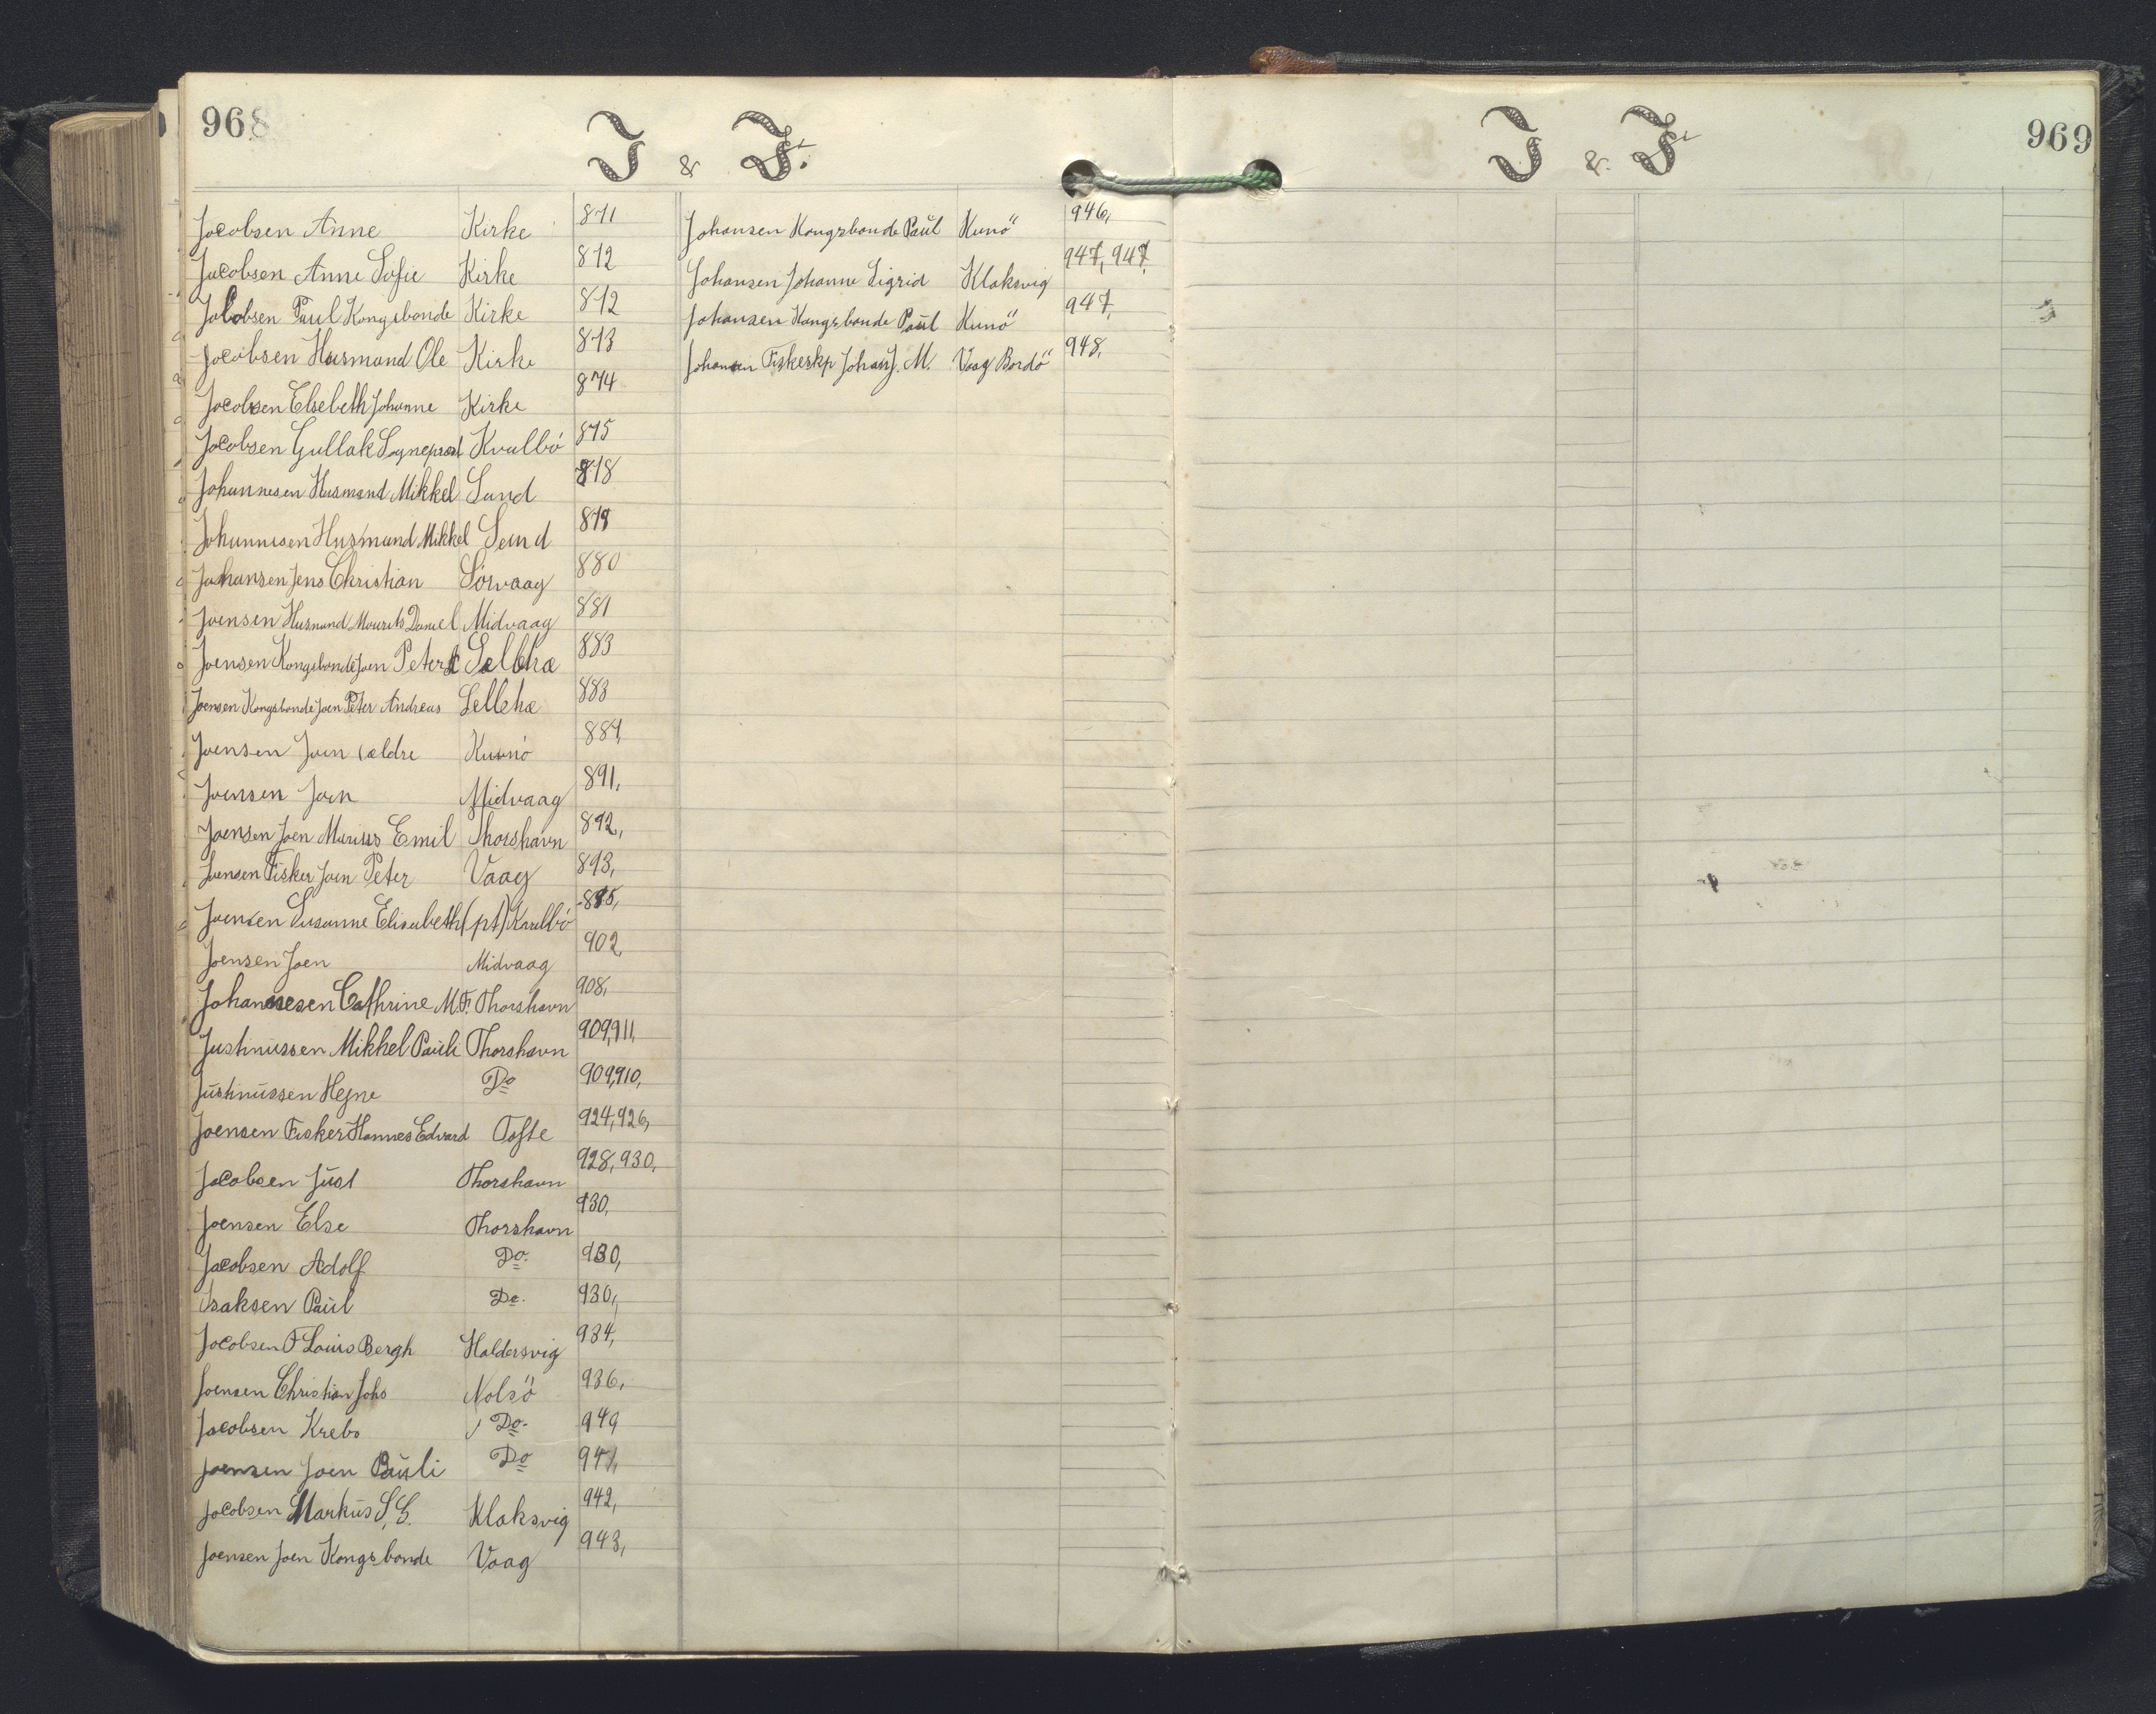 968
I & J.
Jacobsen Anne Kirke 871
Jacobsen Anne Sofie Kirke 872
Jacobsen Paul Kongsbonde Kirke 872
Jacobsen Husmand Ole Kirke 873
Jacobsen Elsebeth Johanne Kirke 874
Jacobsen Gullak Sogneprest Kvalbö 875
Johannesen Husmand Mikkel Sand 878
Johannesen Husmand Mikkel Sand
Johansen Jens Christian Sörvaag 880
Joensen Husmand Mourits Daniel Midvaag 881
Joensen Kongsbonde Joen Peter 883
Joensen Kongsbonde Joen Peter Andreas 883
Joensen Joen ældre Kunö 884,
Joensen Joen Midvaag 891,
Joensen Joen Marius Emil Thorshavn 892,
Joensen Fisker Joen Peter Vaag 893,
Joensen Susanne Elisabeth (pt) Kvalbö
Joensen Joen Midvaag 902,
Johannesen Cathrine M.F. Thorshavn 908,
Justinussen Mikkel Pauli Thorshavn 909,911,
Justinussen Hegne Do 909,910,
Joensen Fisker Hannes Edvard Tofte 924,926,
Jacobsen Just Thorshavn 928,930,
Joensen Else Thorshavn 930,
Jacobsen Adolf Do. 930,
Isaksen Paul Do. 930,
Jacobsen F Louis Bergh Haldersvig 934,
Joensen Christian Johs Nolsö 936,
Jacobsen Krebs Do. 949
Joensen Joen Pauli Do 941,
Jacobsen Markus S.S. Klaksvig 942,
Joensen Joen Kongsbonde Vaag 943,
Johansen Kongsbonde Paul Kunö 946,
Johansen Johanne Sigrid Klaksvig 947, 947,
Johansen Kongsbonde Paul Kunö 947,
Johansen Fiskeskp Johan J. M. Vaag Bordö 948,
I & J
969